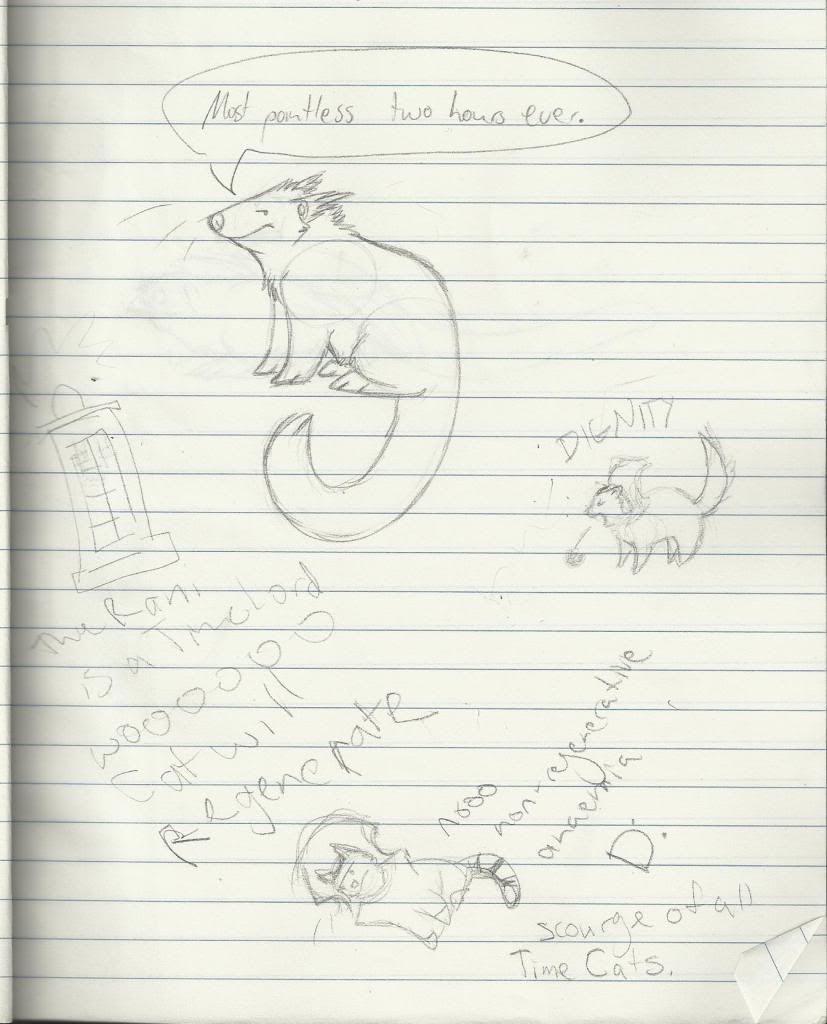 Most pointless two hours ever.
DIGNITY
The Rani
is a TimeLord
woooooo
Cat will
Regenerate
nooo
non-regenerative
anaemia
D:
scourge of all
Time Cats.